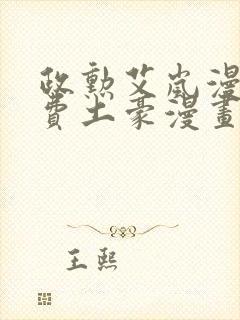 政勳艾嵐漫
費土豪漫畫
王熙